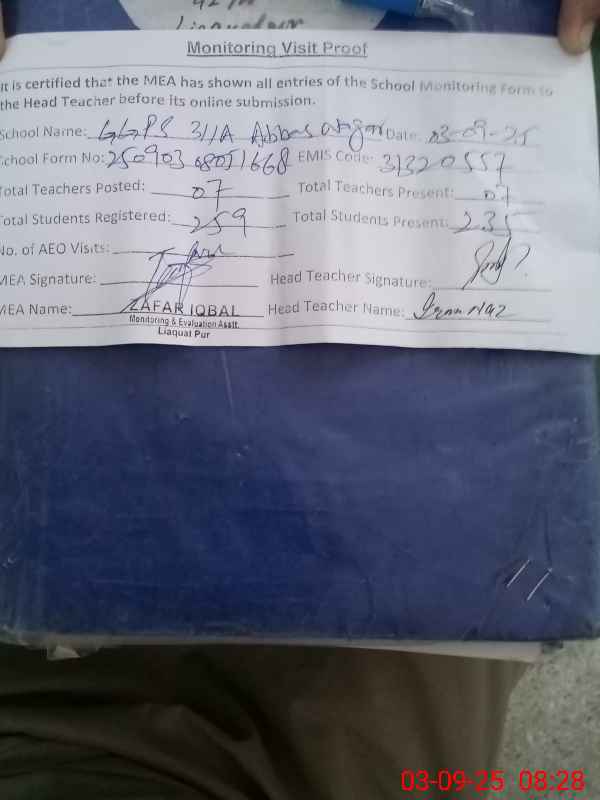 Liaquatpur
Monitoring Visit Proof
It is certified that the MEA has shown all entries of the School Monitoring Form to
the Head Teacher before its online submission.
School Name: GGPS 311A Abbas Date: 03-09-25
School Form No: 25090308051668 EMIS Code: 31320557
Total Teachers Posted: 07 Total Teachers Present: 07
Total Students Registered: 259 Total Students Present: 235
No. of AEO Visits:
MEA Signature: Head Teacher Signature:
MEA Name: ZAFAR IQBAL Head Teacher Name: Naz
Monitoring & Evaluation Asstt.
Liaquat Pur
03-09-25 08:28